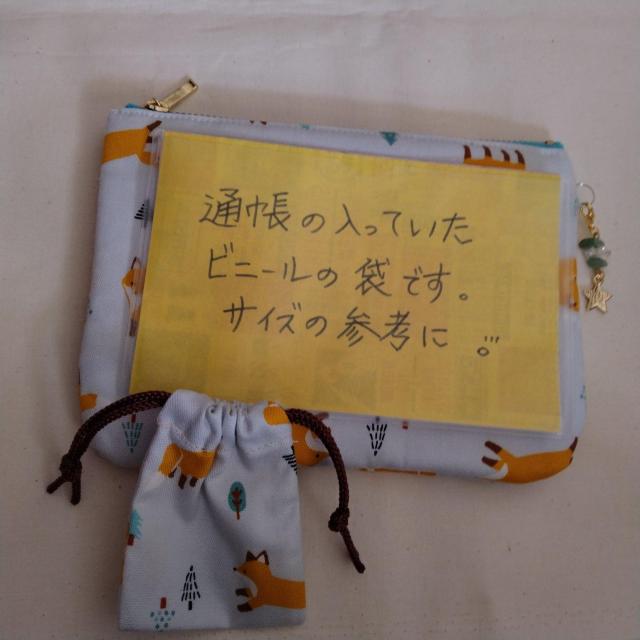 通帳の入っていた
ビニールの袋です。
サイズの参考に